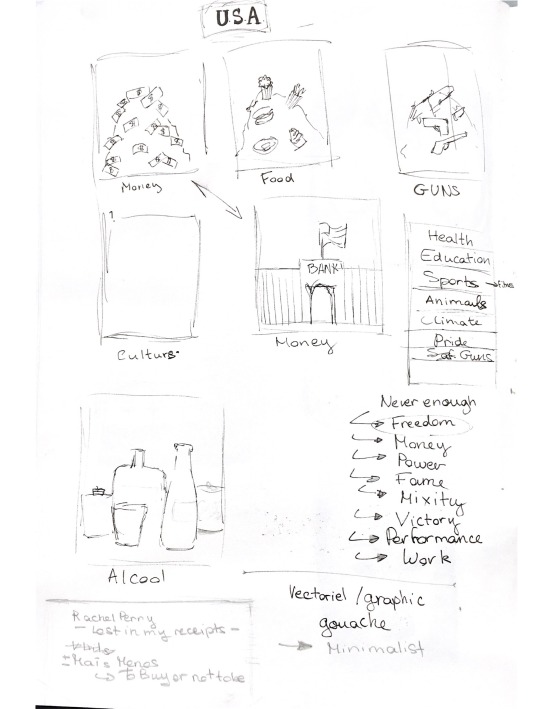 USA
Money
Food
GUNS
BANK
Money
Health
Education
Sports
Animals
Climate
Pride
Guns
Culture
Never enough
Freedom
Money
Power
Fame
Mixity
Victory
Performance
Work
Alcool
Vectoriel / graphic
gouache
Minimalist
Rachel Perry
- Lost in my receipts -
± Mais Menos
To Buy or not to be